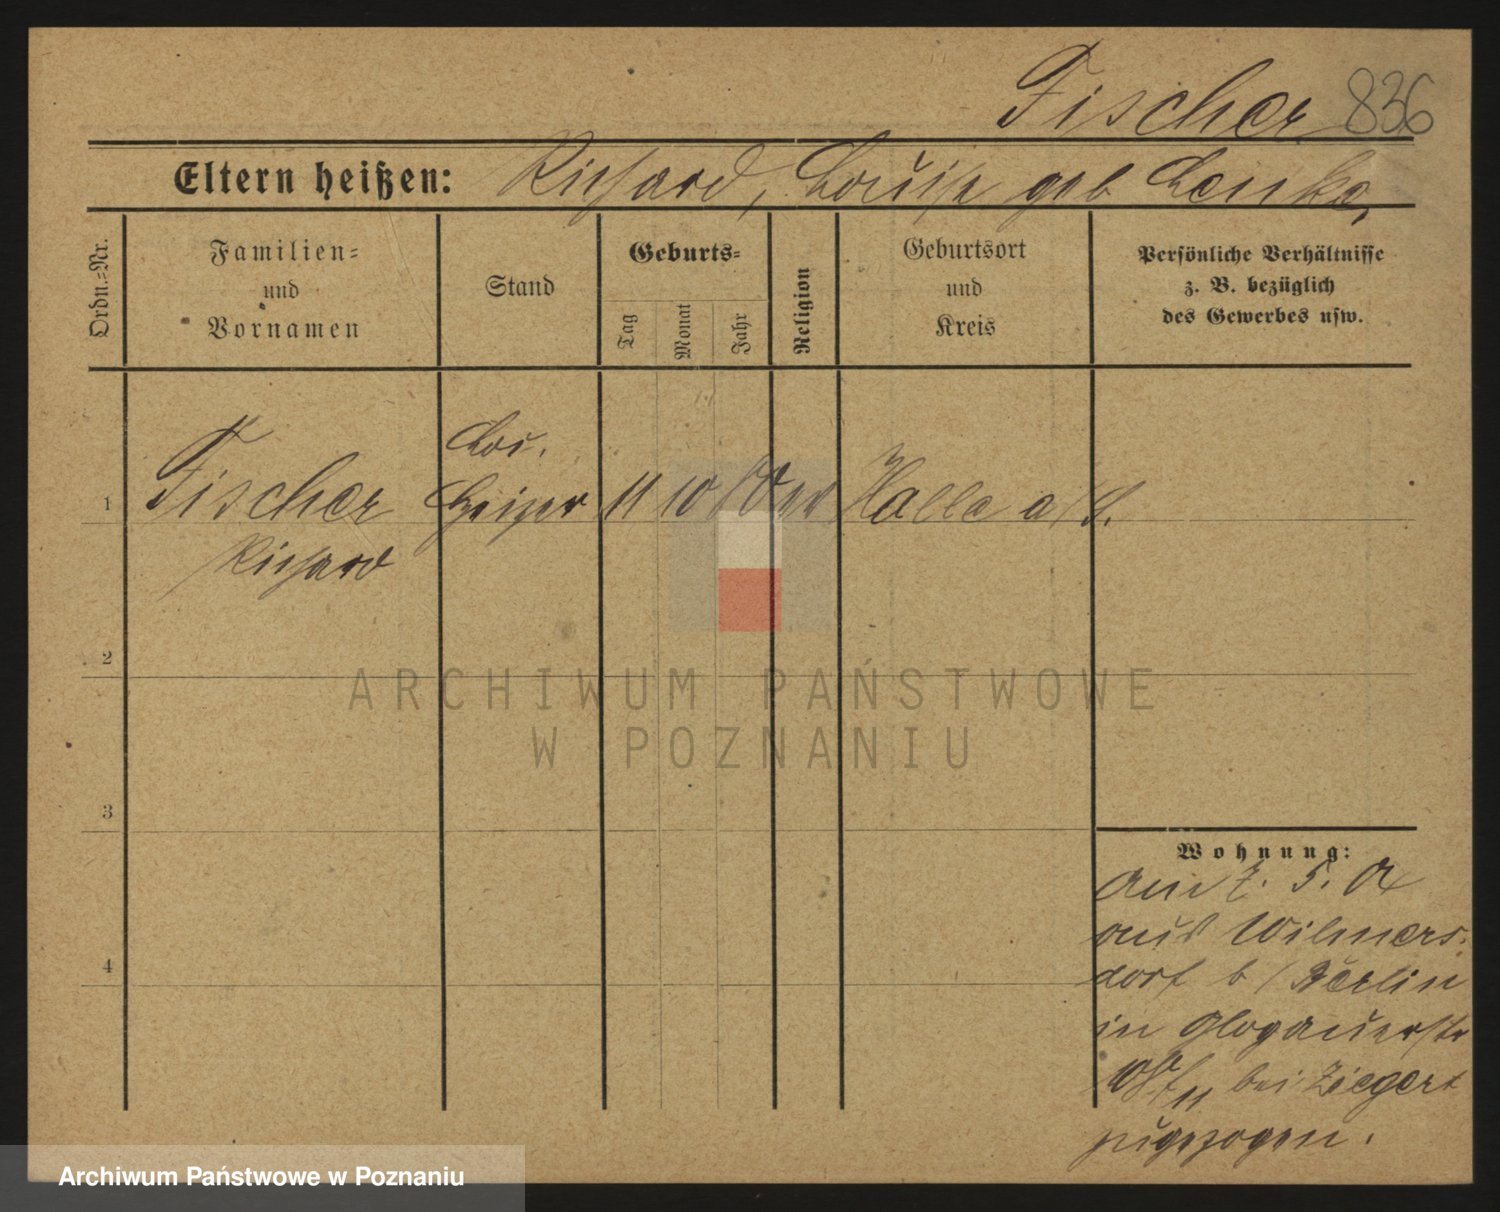 Fischer 836
Eltern heißen: Richard, Louise geb Lenke,
Ordn.-Nr.
Familien-
und
Vornamen
Stand
Geburts-
Tag
Monat
Jahr
Religion
Geburtsort
und
Kreis
Persönliche Verhältnisse
z. B. bezüglich
des Gewerbes usw.
Lok.
1 Fischer Heizer 11 10 80 ev Halle a/S.
Richard
2
ARCHIWUM PAŃSTWOWE
W POZNANIU
3
Wohnung:
am 7. 5. 04
aus Wilmers-
4
dorf b/Berlin
in Glogauerstr
bei Ziegert
zugezogen.
Archiwum Państwowe w Poznaniu